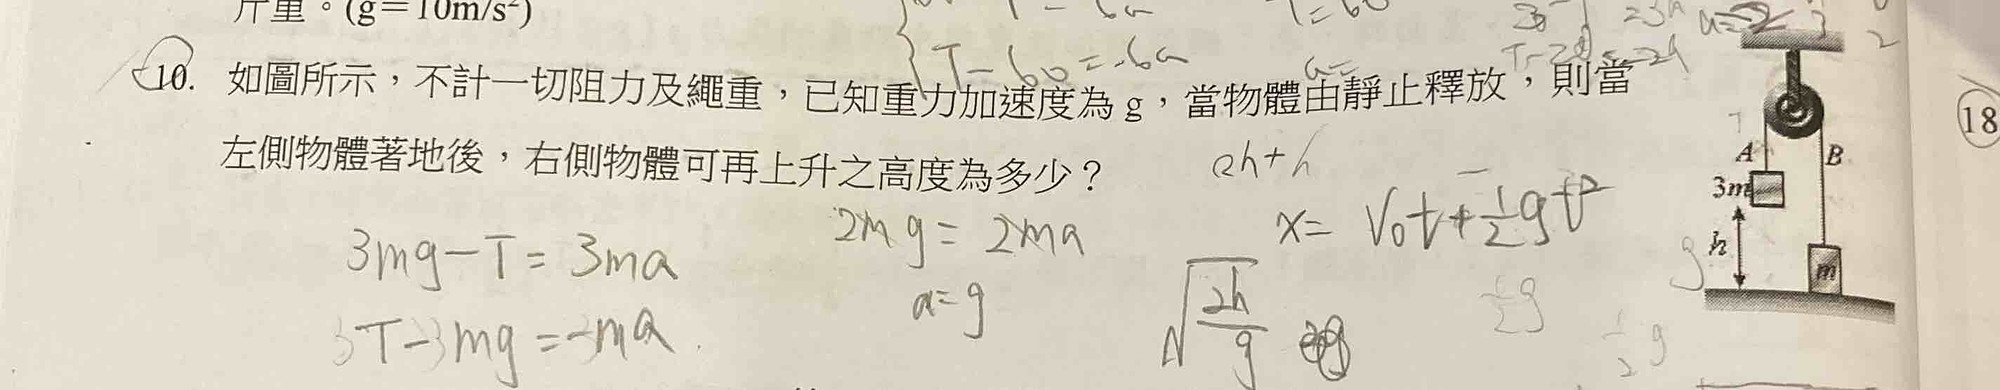 斤重。(g＝10m/s²)
T－60＝-6a
10. 如圖所示，不計一切阻力及繩重，已知重力加速度為 g，當物體由靜止釋放，則當
左側物體著地後，右側物體可再上升之高度為多少？
18
A
B
3m
h
m
2h+h
3mg－T＝3ma
2mg＝2ma
x＝V₀t+½gt²
a＝g
√(2h/g)
½g
½g